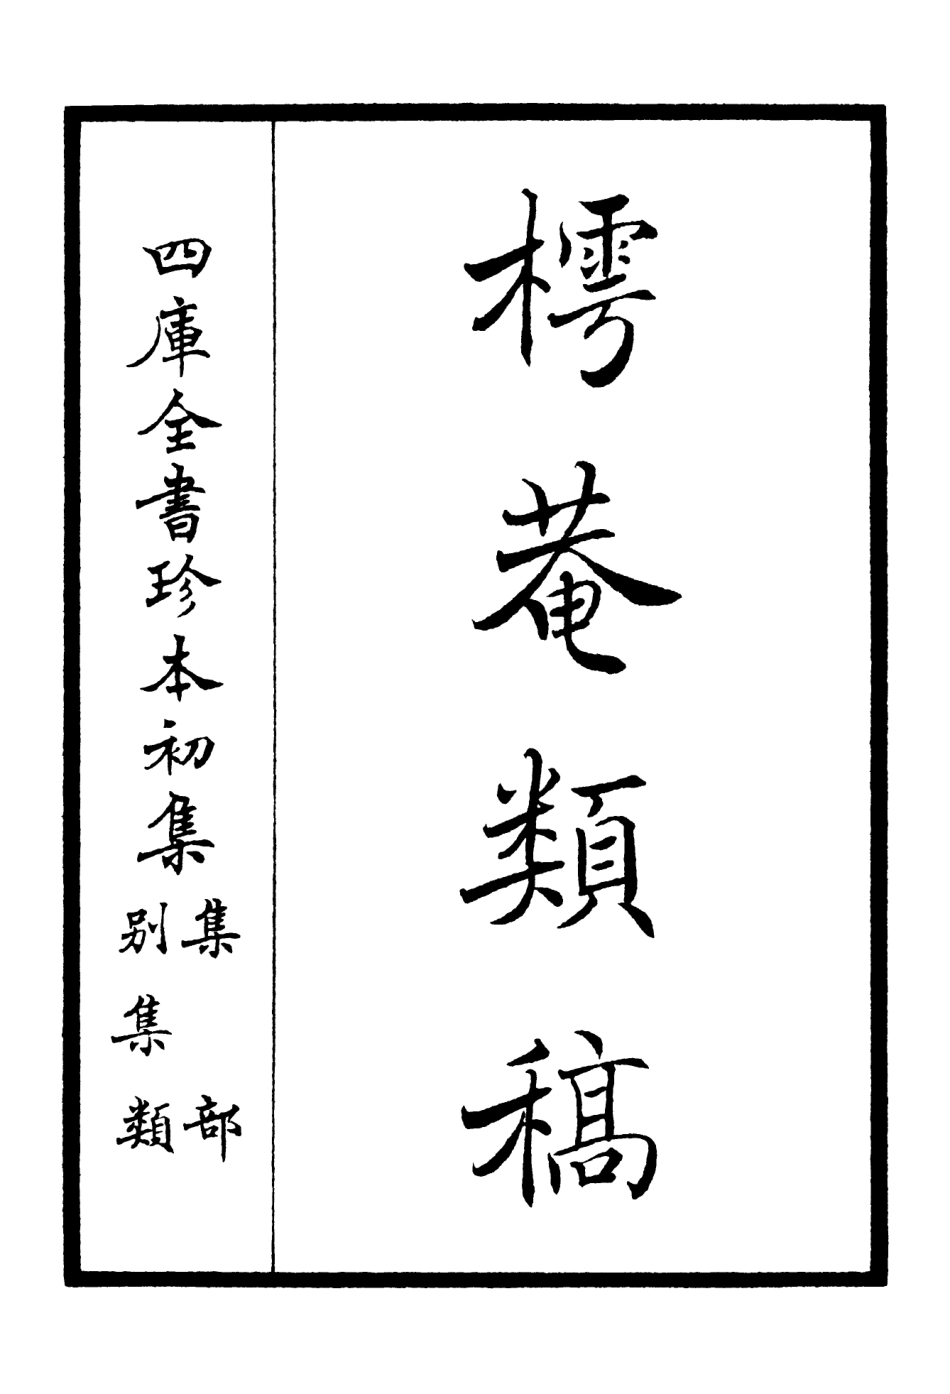 樗菴類稿
四庫全書珍本初集
集部
別集類